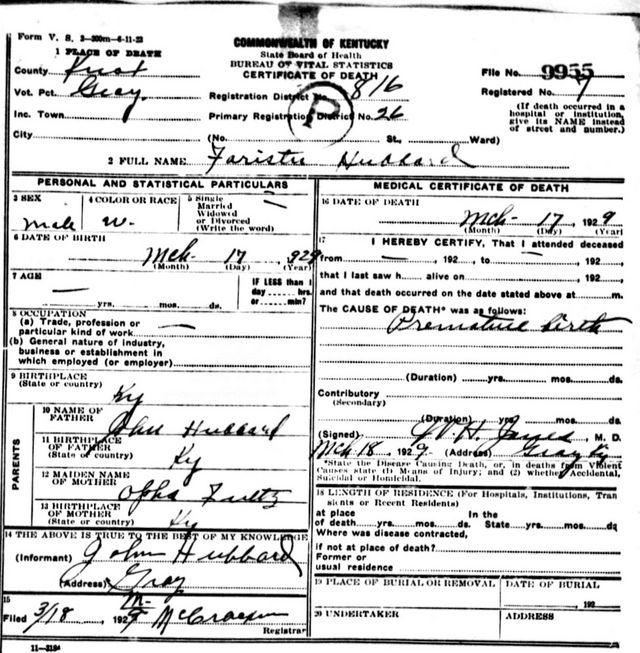 Form V. S. 2-200m-6-11-23
COMMONWEALTH OF KENTUCKY
State Board of Health
BUREAU OF VITAL STATISTICS
CERTIFICATE OF DEATH
1 PLACE OF DEATH
County Knox
Vot. Pct. Gray.
Inc. Town
City
Registration District No. 816
Primary Registration District No. 26
(No. St., Ward)
File No. 9955
Registered No. 9
(If death occurred in a
hospital or institution,
give its NAME instead
of street and number.)
P
2 FULL NAME Faristu Hubbard
PERSONAL AND STATISTICAL PARTICULARS
3 SEX
male
4 COLOR OR RACE
W.
5 Single
Married
Widowed
or Divorced
(Write the word)
—
6 DATE OF BIRTH
Mch. 17 929
(Month) (Day) (Year)
7 AGE
—
yrs. mos. ds.
IF LESS than 1
day hrs.
or min?
8 OCCUPATION
(a) Trade, profession or
particular kind of work —
(b) General nature of industry,
business or establishment in
which employed (or employer)
9 BIRTHPLACE
(State or country)
Ky
PARENTS
10 NAME OF
FATHER
John Hubbard
11 BIRTHPLACE
OF FATHER
(State or country)
Ky
12 MAIDEN NAME
OF MOTHER
Opha Fultz
13 BIRTHPLACE
OF MOTHER
(State or country)
Ky
14 THE ABOVE IS TRUE TO THE BEST OF MY KNOWLEDGE
(Informant) John Hubbard
(Address) Gray
15
Filed 3/18 1929 McCracken
Registrar
11-3184
MEDICAL CERTIFICATE OF DEATH
16 DATE OF DEATH
Mch- 17, 1929
(Month) (Day) (Year)
17 I HEREBY CERTIFY, That I attended deceased
from —, 192 to —, 192,
that I last saw h alive on, 192,
and that death occurred on the date stated above at m.
The CAUSE OF DEATH* was as follows:
Premature birth
(Duration) yrs. mos. ds.
Contributory
(Secondary)
(Duration) yrs. mos. ds.
(Signed) M. D.
Mch 18 1929. (Address) Gray Ky
*State the Disease Causing Death, or, in deaths from Violent
Causes state (1) Means of Injury; and (2) whether Accidental,
Suicidal or Homicidal.
18 LENGTH OF RESIDENCE (For Hospitals, Institutions, Tran
sients or Recent Residents)
at place In the
of death yrs. mos. ds. State yrs. mos. ds
Where was disease contracted,
if not at place of death?
Former or
usual residence
19 PLACE OF BURIAL OR REMOVAL
DATE OF BURIAL
192
20 UNDERTAKER
ADDRESS